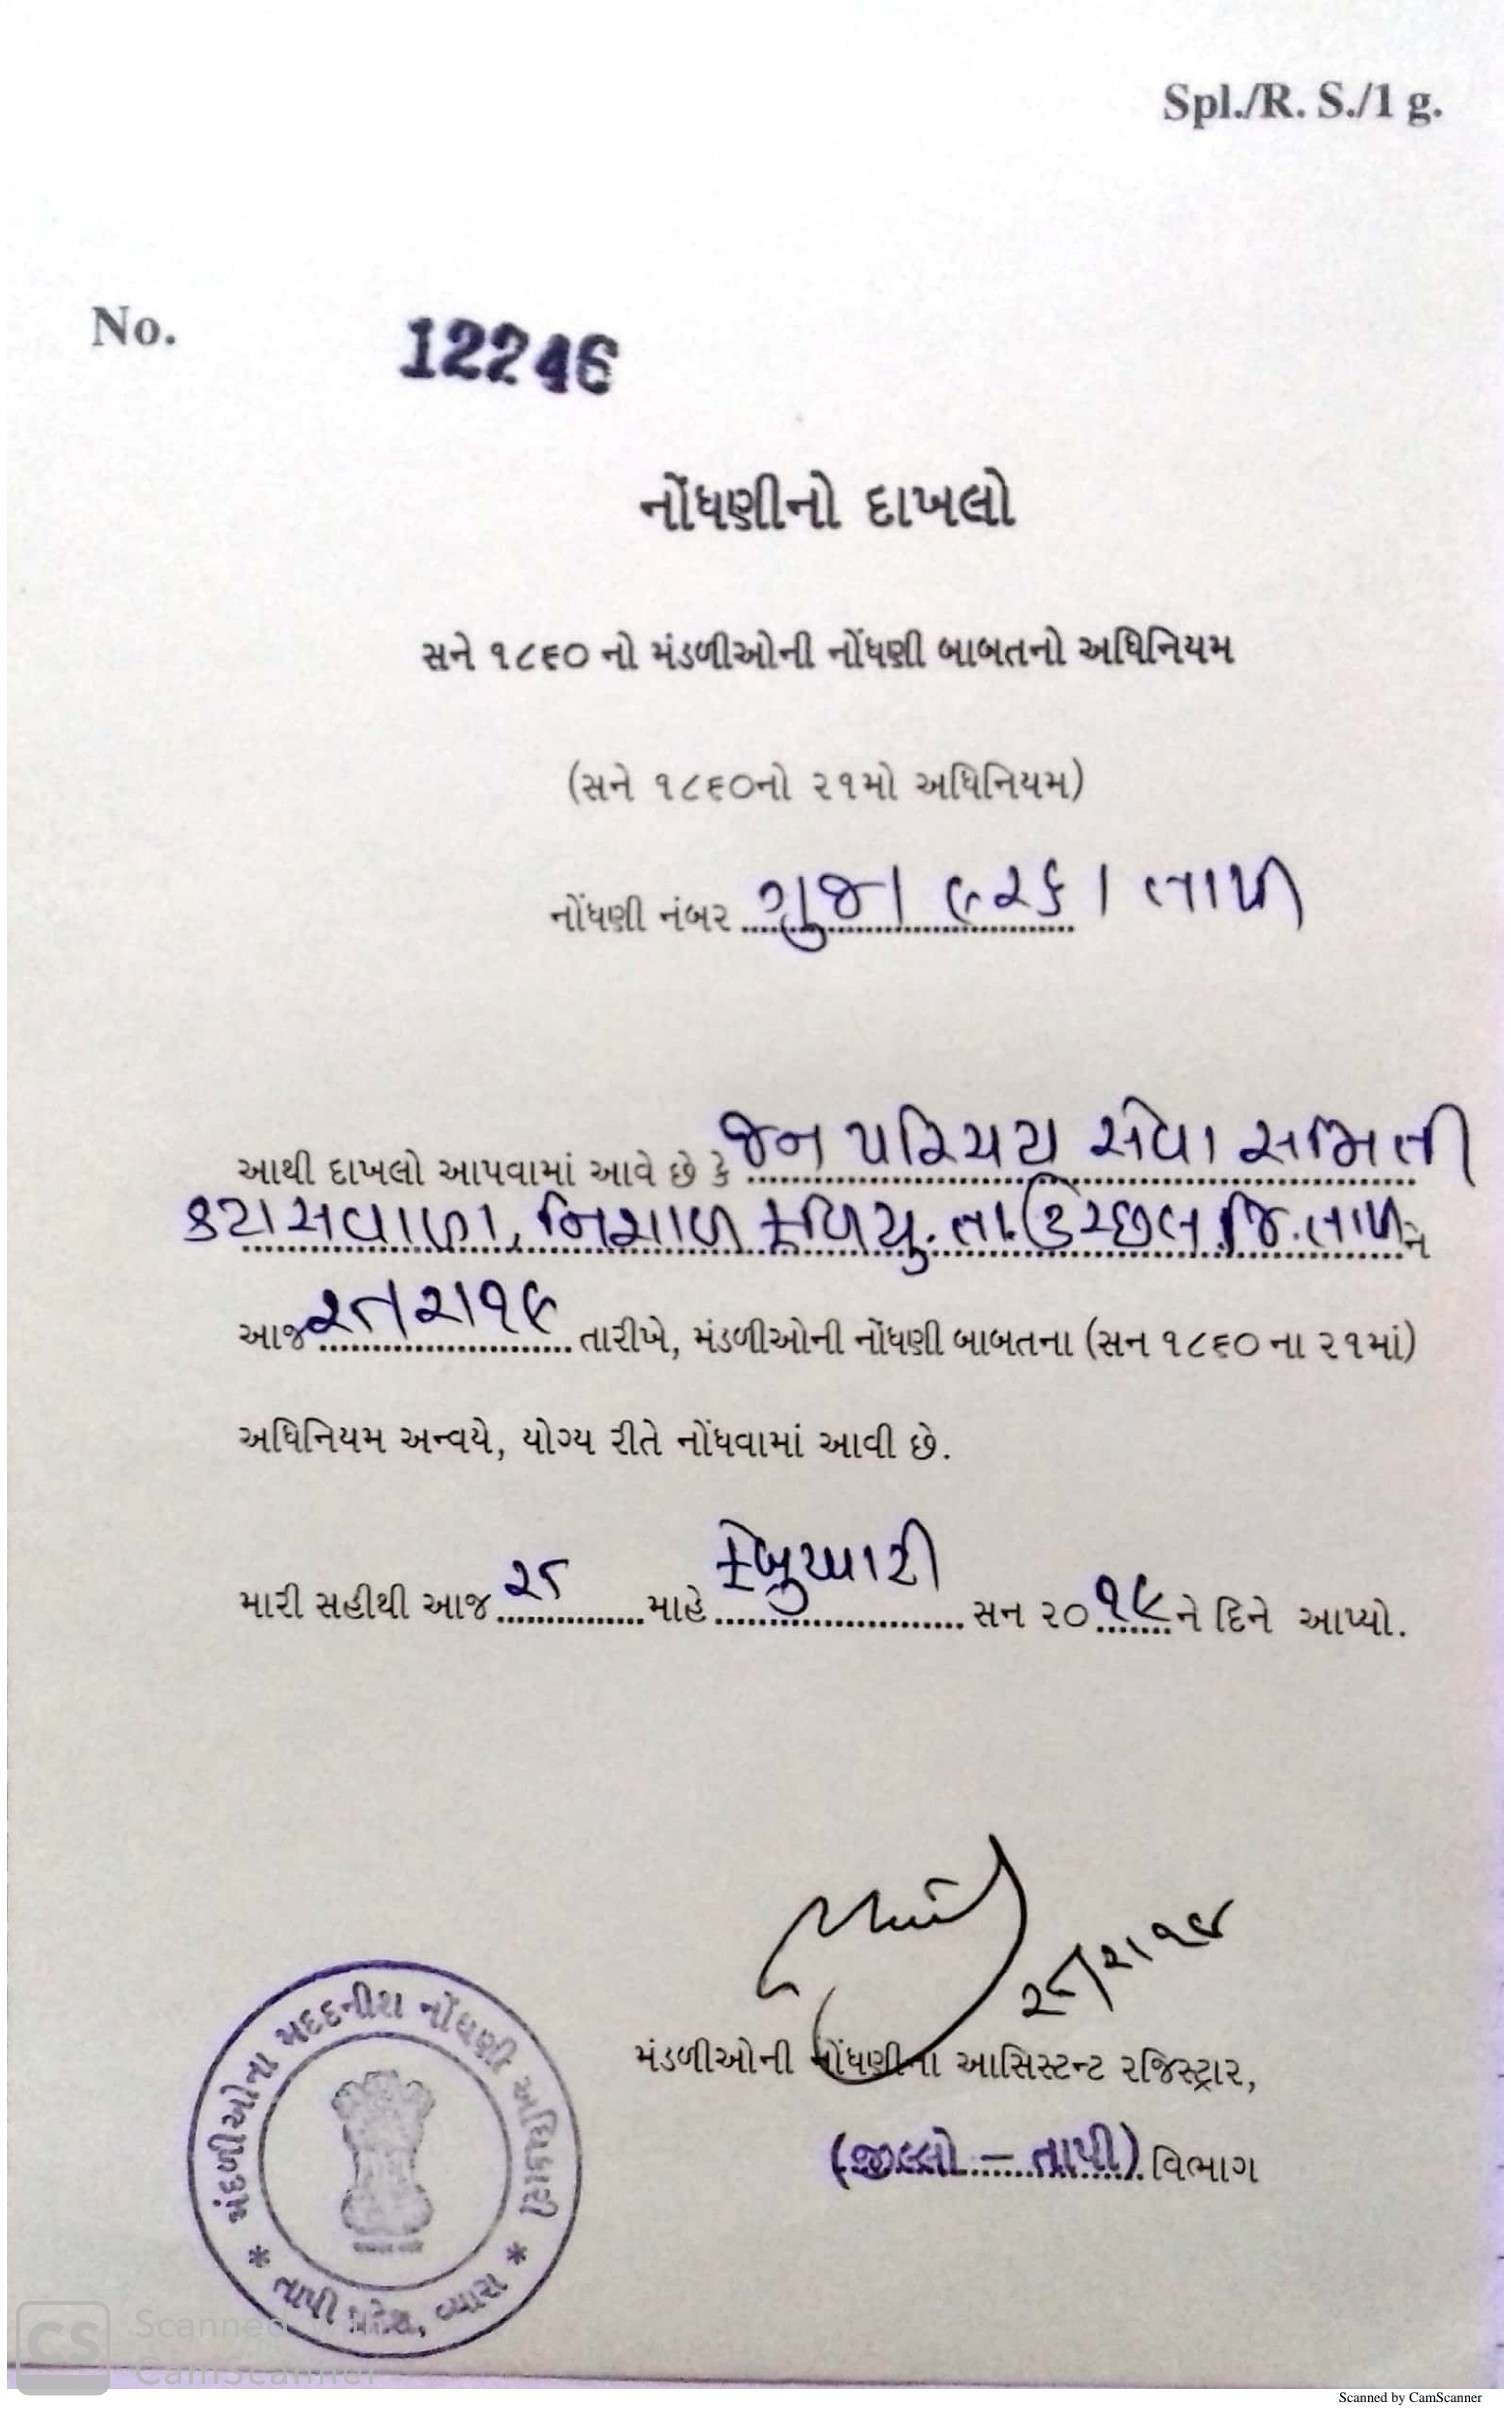 Spl./R. S./1 g.
No. 12246
નોંધણીનો દાખલો
સને ૧૮૬૦ નો મંડળીઓની નોંધણી બાબતનો અધિનિયમ
(સને ૧૮૬૦નો ૨૧મો અધિનિયમ)
નોંધણી નંબર ગુજ/ ૯૨૬ / તાપી
આથી દાખલો આપવામાં આવે છે કે જન પરિચય સેવા સમિતી
કટાસવાણ, નિશાળ ફળિયુ. તા. ઉચ્છલ જિ. તાપી ને
આજ ૨૮/૨/૧૯ તારીખે, મંડળીઓની નોંધણી બાબતના (સન ૧૮૬૦ ના ૨૧માં)
અધિનિયમ અન્વયે, યોગ્ય રીતે નોંધવામાં આવી છે.
મારી સહીથી આજ ૨૮ માહે ફેબ્રુઆરી સન ૨૦૧૯ ને દિને આપ્યો.
૨૮/૨/૧૯
મંડળીઓની નોંધણીના આસિસ્ટન્ટ રજિસ્ટ્રાર,
(જીલ્લો – તાપી) વિભાગ
મંડળીઓના મદદનીશ નોંધણી અધિકારી
* તાપી પ્રદેશ, વ્યારા *
CS Scanned with
CamScanner
Scanned by CamScanner